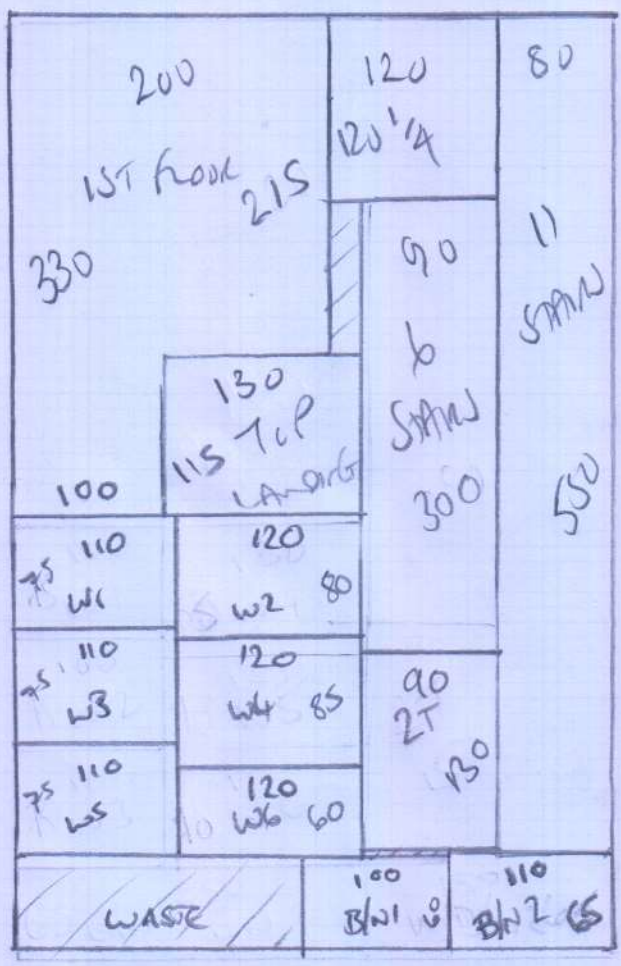 200
1ST FLOOR
215
330
100
120
120 1/4
80
11
STAIRS
550
90
6
STAIRS
300
130
115 TOP
LANDING
110
75
W1
120
W2 80
110
75
W3
120
W4 85
110
75
W5
120
W6 60
90
2T
130
WASTE
100
B/N1
110
B/N2 65